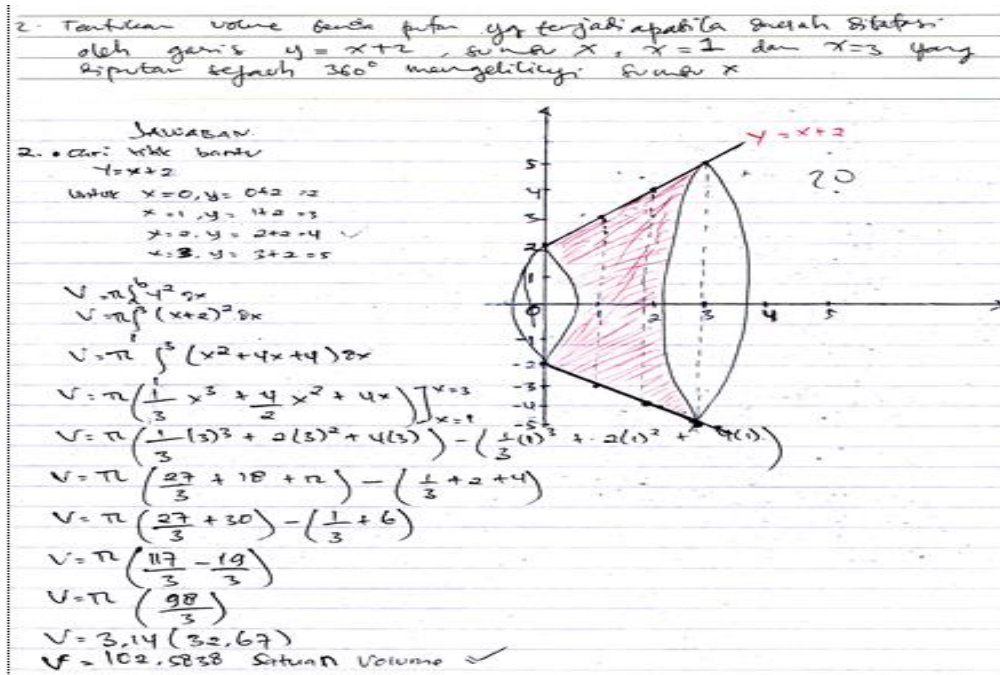 2. Tentukan volume benda putar yg terjadi apabila daerah dibatasi
oleh garis y = x+2, sumbu X, x = 1 dan x=3 yang
diputar sejauh 360° mengelilingi sumbu x
JAWABAN
2. • Cari titik bantu
Y=x+2
Untuk x=0, y= 0+2 =2
x=1, y= 1+2 =3
x=2, y= 2+2=4 ✓
x=3, y= 3+2=5
V=π∫ᵇ y² dx
V=π∫³ (x+2)² dx
V=π ∫₁³ (x²+4x+4) dx
V=π(1/3 x³ + 4/2 x² + 4x)]ˣ⁼³ₓ₌₁
V=π(1/3(3)³ + 2(3)² + 4(3)) - (1/3(1)³ + 2(1)² + 4(1))
V=π(27/3 + 18 + 12) - (1/3 + 2 + 4)
V=π(27/3 + 30) - (1/3 + 6)
V=π(117/3 - 19/3)
V=π(98/3)
V=3,14(32,67)
V=102,5838 Satuan Volume ✓
y = x+2
??
5
4
3
2
1
0 1 2 3 4 5
-2
-3
-4
-5